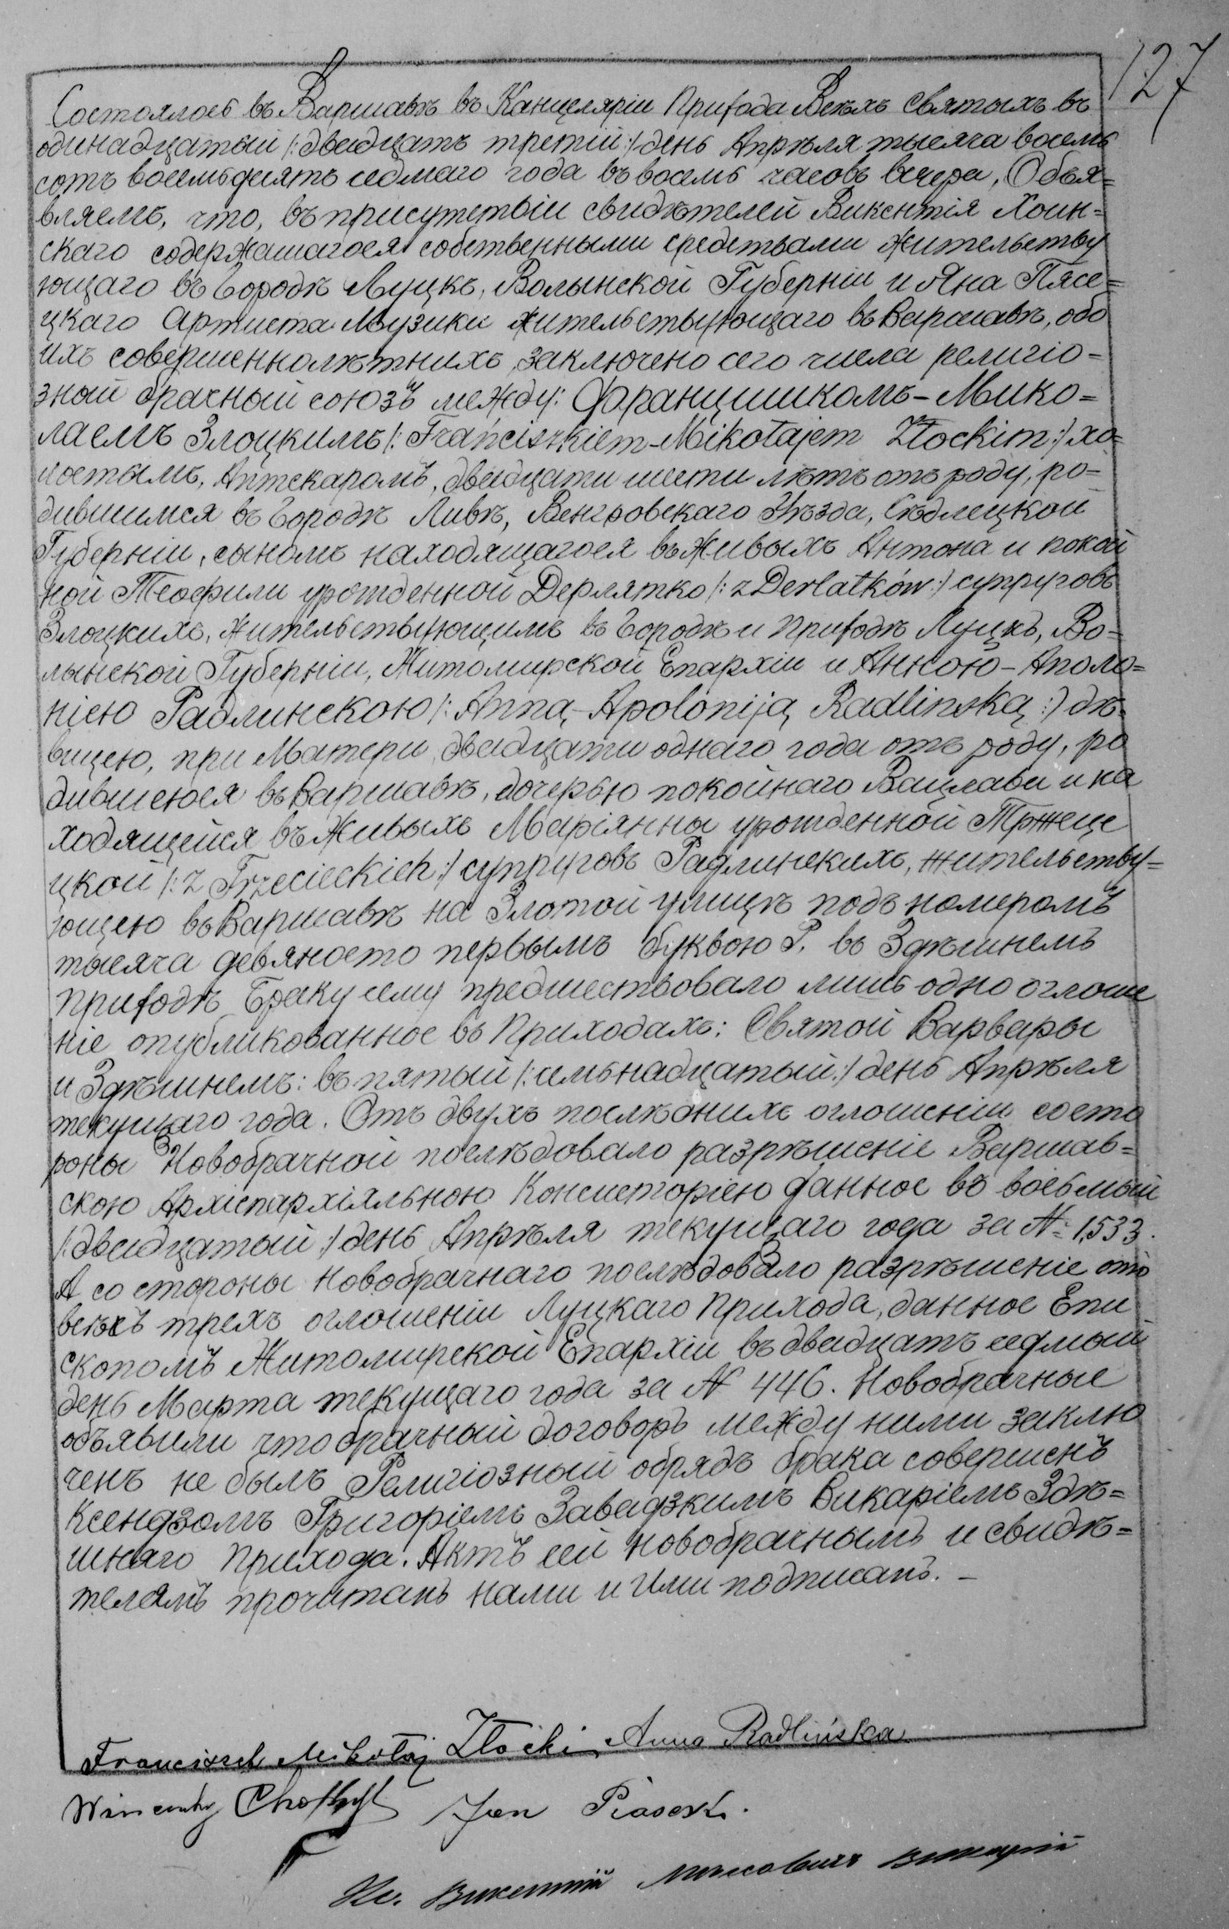 127
Состоялось въ Варшавѣ въ Канцеляріи Прихода Всѣхъ Святыхъ въ
одинадцатый /: двадцать третій :/ день Апрѣля тысяча восемь
сотъ восемьдесять седмаго года въ восемь часовъ вечера, Объя=
вляемъ, что, въ присутствіи свидѣтелей Викентія Хоин=
скаго содержащагося собственными средствами жительству
ющаго въ Городѣ Луцкѣ, Волынской Губерніи и Яна Пясе=
цкаго Артиста Музыки жительствующаго въ Варшавѣ, обо
ихъ совершеннолѣтнихъ, заключено сего числа религіо=
зный брачный союзъ между: Францишкомъ-Мико=
лаемъ Злоцкимъ /: Franciszkiem-Mikołajem Złockim :/ хо=
лостымъ, Аптекаромъ, двадцати шести лѣтъ отъ роду, ро=
дившимся въ Городѣ Ливѣ, Венгровскаго Уѣзда, Сѣдлецкой
Губерніи, сыномъ находящагося въ живыхъ Антона и покой
ной Теофили урожденной Дерлятко /: z Derlatków :/ супруговъ
Злоцкихъ, жительствующимъ въ Городѣ и Приходѣ Луцкъ, Во=
лынской Губерніи, Житомирской Епархіи и Анною-Аполо=
ніею Радлинскою /: Anną-Apoloniją Radlinską :/ дѣ=
вицею, при Матери, двадцати однаго года отъ роду, ро
дившеюся въ Варшавѣ, дочерью покойнаго Вацлава и на
ходящейся въ живыхъ Маріянны урожденной Тржеце
цкой /: z Trzecieckich :/ супруговъ Радлинскихъ, жительству=
ющею въ Варшавѣ на Злотой улицѣ подъ номеромъ
тысяча девяносто первымъ буквою Р. въ Здѣшнемъ
приходѣ Браку сему предшествовало лишь одно оглоше
ніе опубликованное въ Приходахъ: Святой Варвары
и Здѣшнемъ: въ пятый /: семьнадцатый :/ день Апрѣля
текущаго года. Отъ двухъ послѣднихъ оглошеніи состо
роны Новобрачной послѣдовало разрѣшеніе Варшав=
скою Архіепархіяльною Консисторіею данное въ восьмый
/: двадцатый :/ день Апрѣля текущаго года за № 1,533.
А со стороны Новобрачнаго послѣдовало разрѣшеніе отъ
всѣхъ трехъ оглошеніи Луцкаго Прихода, данное Епи
скопомъ Житомирской Епархіи въ двадцать седмый
день Марта текущаго года за № 446. Новобрачные
объявили что брачный договоръ между ними заклю
ченъ не былъ Религіозный обрядъ брака совершенъ
Ксендзомъ Григоріемъ Завадзкимъ Викаріемъ Здѣ=
шняго Прихода. Актъ сей новобрачнымъ и свидѣ=
телямъ прочитанъ нами и ими подписанъ. –
Franciszek Mikołaj Złocki Anna Radlińska
Wincenty Jan Piasecki.
Кс. Викентій Викарій